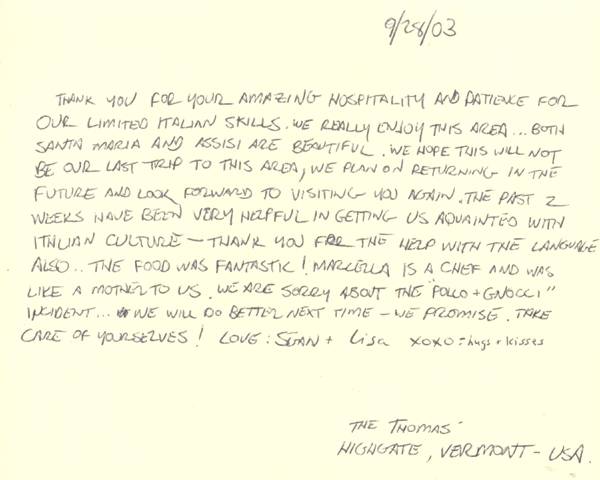 9/28/03
THANK YOU FOR YOUR AMAZING HOSPITALITY AND PATIENCE FOR
OUR LIMITED ITALIAN SKILLS. WE REALLY ENJOY THIS AREA... BOTH
SANTA MARIA AND ASSISI ARE BEAUTIFUL. WE HOPE THIS WILL NOT
BE OUR LAST TRIP TO THIS AREA, WE PLAN ON RETURNING IN THE
FUTURE AND LOOK FORWARD TO VISITING YOU AGAIN. THE PAST 2
WEEKS HAVE BEEN VERY HELPFUL IN GETTING US AQUAINTED WITH
ITALIAN CULTURE — THANK YOU FOR THE HELP WITH THE LANGUAGE
ALSO.. THE FOOD WAS FANTASTIC! MARCELLA IS A CHEF AND WAS
LIKE A MOTHER TO US. WE ARE SORRY ABOUT THE "POLLO + GNOCCI"
INCIDENT... WE WILL DO BETTER NEXT TIME — WE PROMISE. TAKE
CARE OF YOURSELVES! LOVE: SEAN + Lisa xoxo = hugs + kisses
THE THOMAS'
HIGHGATE, VERMONT - USA.